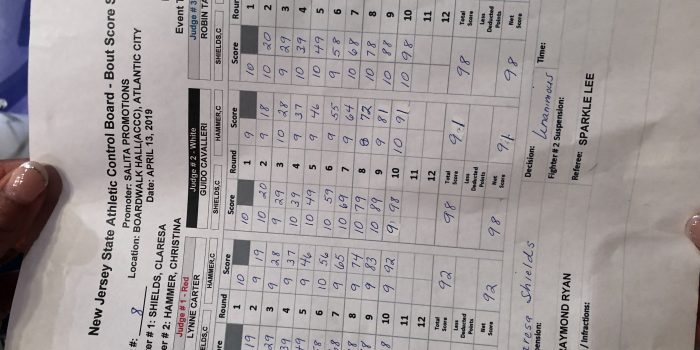 New Jersey State Athletic Control Board - Bout Score S
Promoter: SALITA PROMOTIONS
Location: BOARDWALK HALL(ACCC), ATLANTIC CITY
Date: APRIL 13, 2019
#: 8
Event T
er # 1: SHIELDS, CLARESA
er # 2: HAMMER, CHRISTINA
Judge # 1 - Red
Judge # 2 - White
Judge # 3
LYNNE CARTER
GUIDO CAVALLERI
ROBIN TA
ELDS,C HAMMER,C
SHIELDS,C HAMMER,C
SHIELDS,C
re Round Score
Score Round Score
Score Roun
1 10
10 1 9
10 1
19 2 9 19
10 20 2 9 18
10 20 2
29 3 9 28
9 29 3 10 28
9 29 3
39 4 9 37
10 39 4 9 37
10 39 4
49 5 9 46
10 49 5 9 46
10 49 5
6 10 56
10 59 6 9 55
9 58 6
7 9 65
10 69 7 9 64
10 68 7
8 9 74
10 79 8 8 72
10 78 8
9 9 83
10 89 9 9 81
10 88 9
10 9 92
9 98 10 10 91
10 98 10
11
11
11
12
12
12
Total Score 92
98 Total Score 91
98 Total Score
Less Deducted Points
Less Deducted Points
Less Deducted Points
Net Score 92
98 Net Score 91
98 Net Score
Shields
Decision: Unanimous
Time:
ension:
Fighter # 2 Suspension:
AYMOND RYAN
Referee: SPARKLE LEE
/ Infractions: